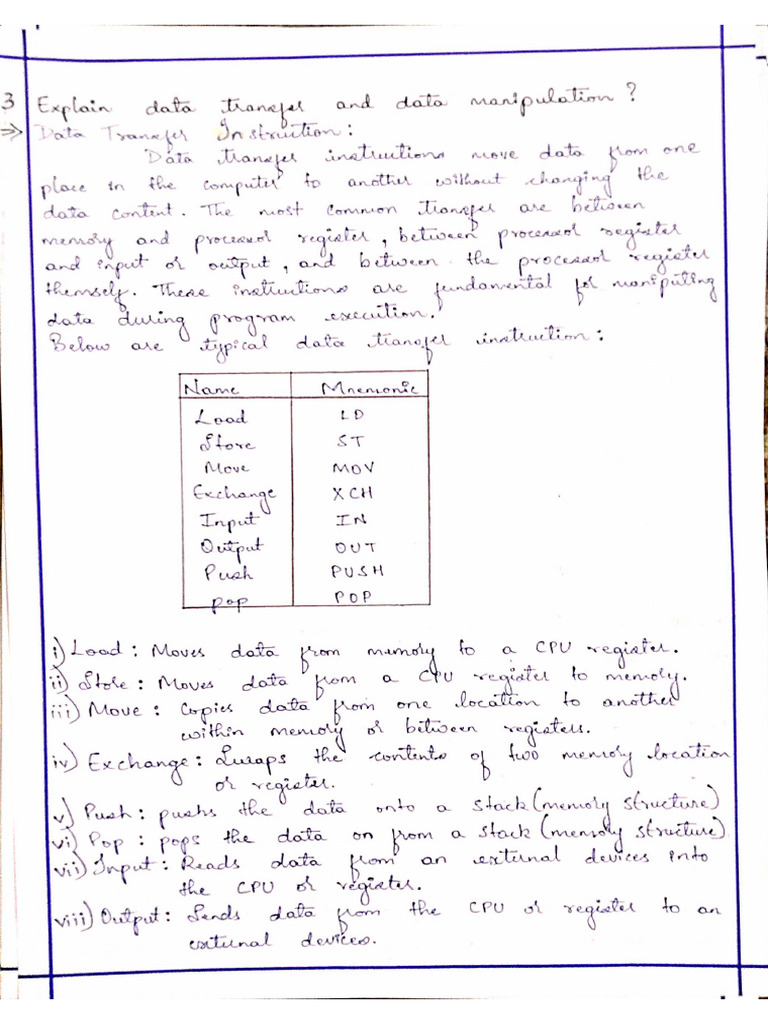 3 Explain data transfer and data manipulation ?
⇒ Data Transfer Instruction :
Data transfer instructions move data from one
place in the computer to another without changing the
data content. The most common transfer are between
memory and processor register, between processor register
and input or output, and between the processor register
themself. These instructions are fundamental for maniputing
data during program execution.
Below are typical data transfer instruction :
Name Mnemonic
Load LD
Store ST
Move MOV
Exchange XCH
Input IN
Output OUT
Push PUSH
pop POP
i) Load : Moves data from memory to a CPU register.
ii) Store : Moves data from a CPU register to memory.
iii) Move : Copies data from one location to another
within memory or between registers.
iv) Exchange : Swaps the contents of two memory location
or register.
v) Push : pushs the data onto a stack (memory structure)
vi) Pop : pops the data on from a stack (memory structure)
vii) Input : Reads data from an external devices into
the CPU or register.
viii) Output : Sends data from the CPU or register to an
external devices.